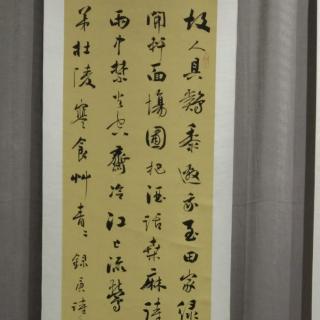 故人具鷄黍邀我至田家綠
開軒面場圃把酒話桑麻
雨中禁火空齋冷江上流鶯
弟杜陵寒食艸青々錄唐詩